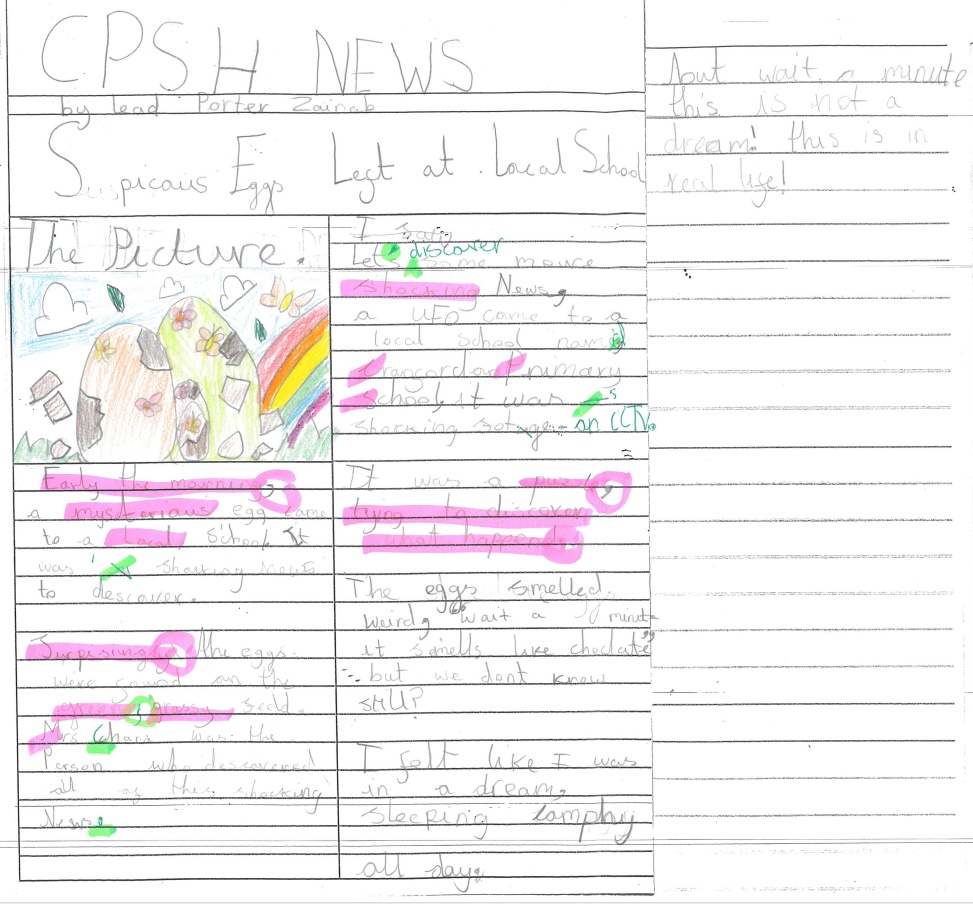 CPSH NEWS
by lead Porter Zainab
Suspicous Eggs Left at Local School
The Picture.
Early the morning,
a mysterious egg came
to a local school. It
was shocking News
to descover.
Surpisingly, the eggs
were found on the
green, grassy feild.
Mrs Ghani was the
Person who descovered
all of this shocking
News.
I
Lets discover some more
shocking News,
a UFO came to a
local school named
Primary
School, it was
shocking on CCTV.
It was a
tying to discover,
what happend.
The eggs smelled
weird, "wait a minute
it smells like choclate"
but we dont know
still?
I felt like I was
in a dream,
sleeping comphy
all day,
but wait a minute
this is not a
dream! this is in
real life!